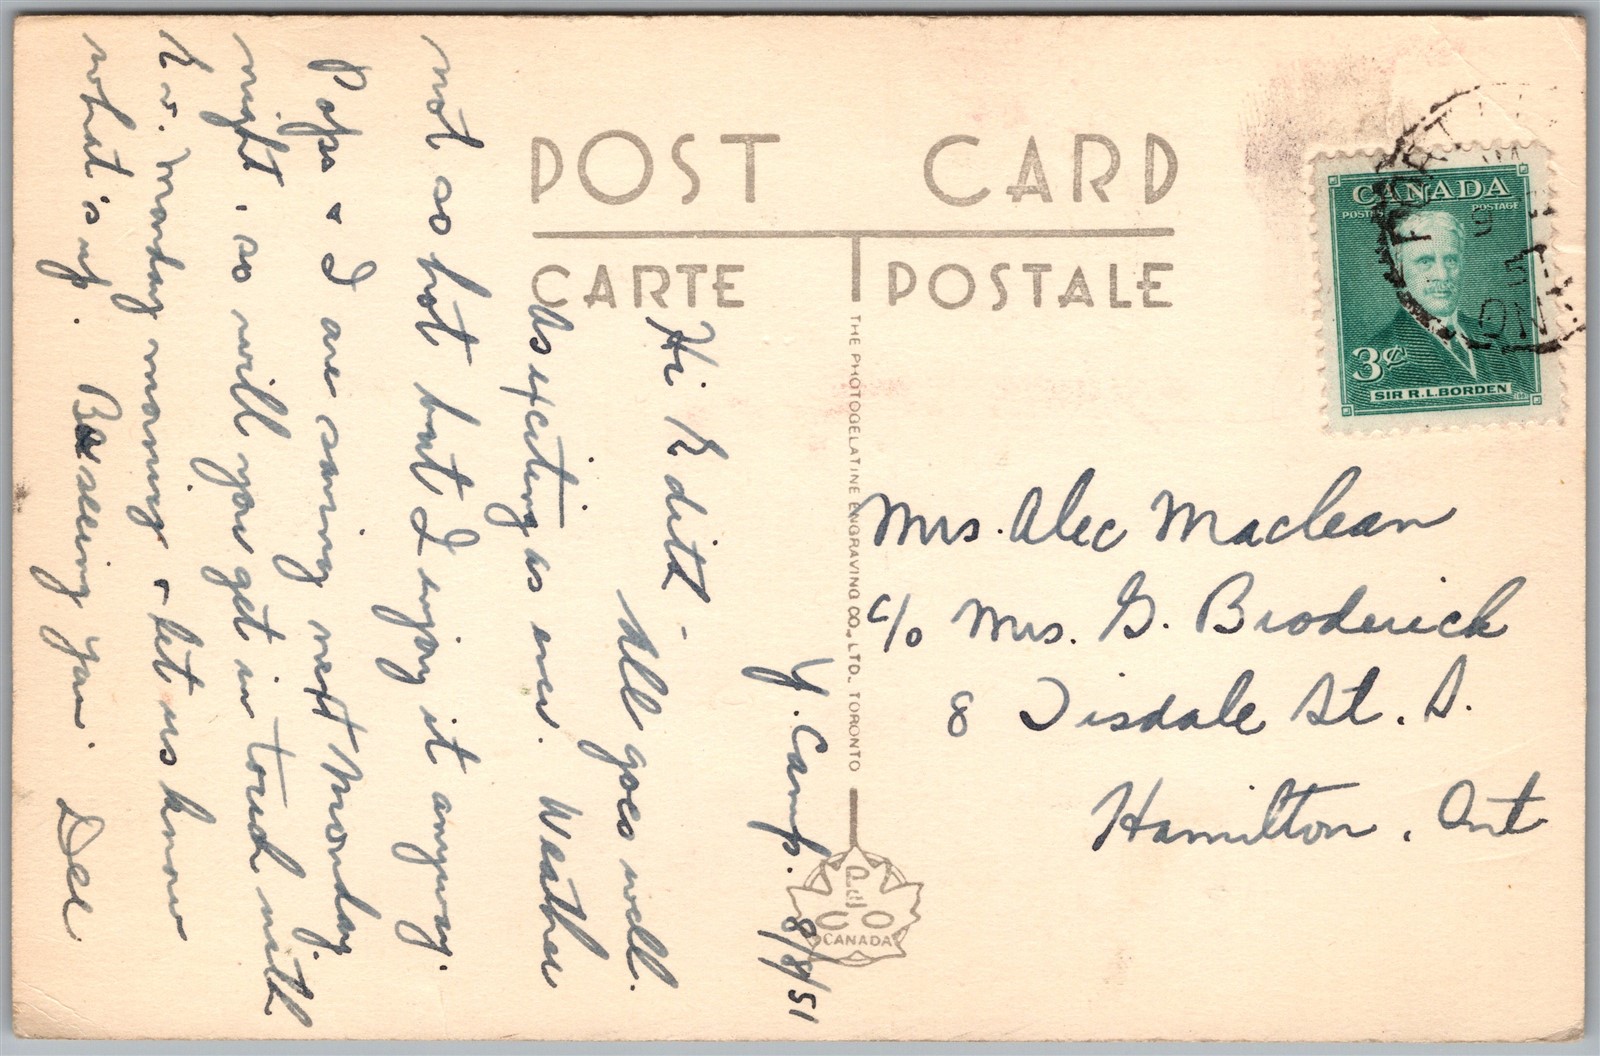 POST CARD
CARTE POSTALE
THE PHOTOGELATINE ENGRAVING CO., LTD., TORONTO
CANADA
CANADA
POSTES POSTAGE
3¢
SIR R.L. BORDEN
Y. Camp. 8/8/51
Hi Edith -
All goes well.
As exciting as ever. Weather
not so hot but I enjoy it anyway.
Pops & I are saning next Monday
night, so will you get in touch with
K w. Monday morning & let us know
what's up. Be seeing you. Dee
Mrs. Alec Maclean
c/o Mrs. G. Broderick
8 Tisdale St. S.
Hamilton, Ont